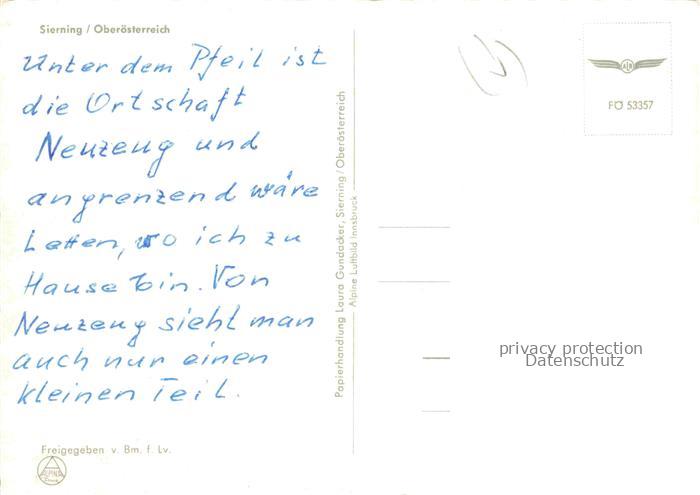 Sierning / Oberösterreich
Unter dem Pfeil ist
die Ortschaft
Neuzeug und
angrenzend wäre
Letten, wo ich zu
Hause bin. Von
Neuzeug sieht man
auch nur einen
kleinen Teil.
Freigegeben v. Bm. f. Lv.
ALPINA
Druck
Papierhandlung Laura Gundacker, Sierning / Oberösterreich
Alpine Luftbild Innsbruck
ALB
FÖ 53357
privacy protection
Datenschutz